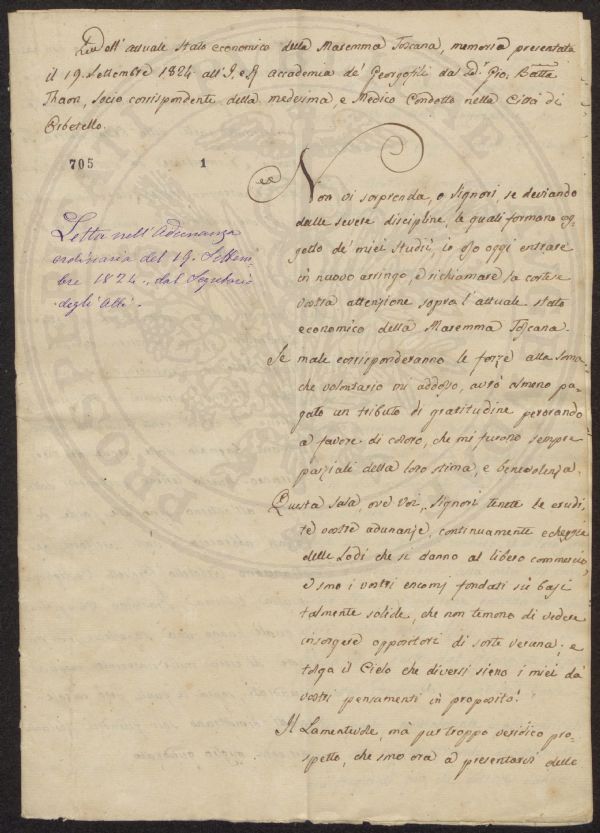 dell'attuale stato economico della Maremma Toscana, memoria presentata
il 19. Settembre 1824 all'I. e R. accademia de' Georgofili dal Gio. Batta
Thaon, socio corrispondente della medesima e Medico Condotto nella Città di
Orbetello.
705 1
Letta nell'Adunanza
ordinaria del 19. Settem
bre 1824. dal Segretario
degli Atti.
Non vi sorprenda, o Signori, se deviando
dalle severe discipline, le quali formano og,
getto de' miei Studii, io oso oggi entrare
in nuovo arringo, e richiamare la cortese
vostra attenzione sopra l'attuale stato
economico della Maremma Toscana.
Se male corrisponderanno le forze alla soma
che volontario mi addosso, avrò almeno pa=
gato un tributo di gratitudine perorando
a favore di coloro, che mi furono sempre
parziali della loro stima, e benevolenza.
Questa Sala, ove Voi, Signori tenete le erudi,
te vostre adunanze, continuamente echeggia
delle Lodi che si danno al libero commercio,
e sono i vostri encomj fondati sù basi
talmente solide, che non temono di vedere
insorgere oppositori di sorte veruna; e
tolga il Cielo che diversi sieno i miei dà
vostri pensamenti in proposito!
Il Lamentevole, mà pur troppo veridico pro=
spetto, che sono ora à presentarvi delle